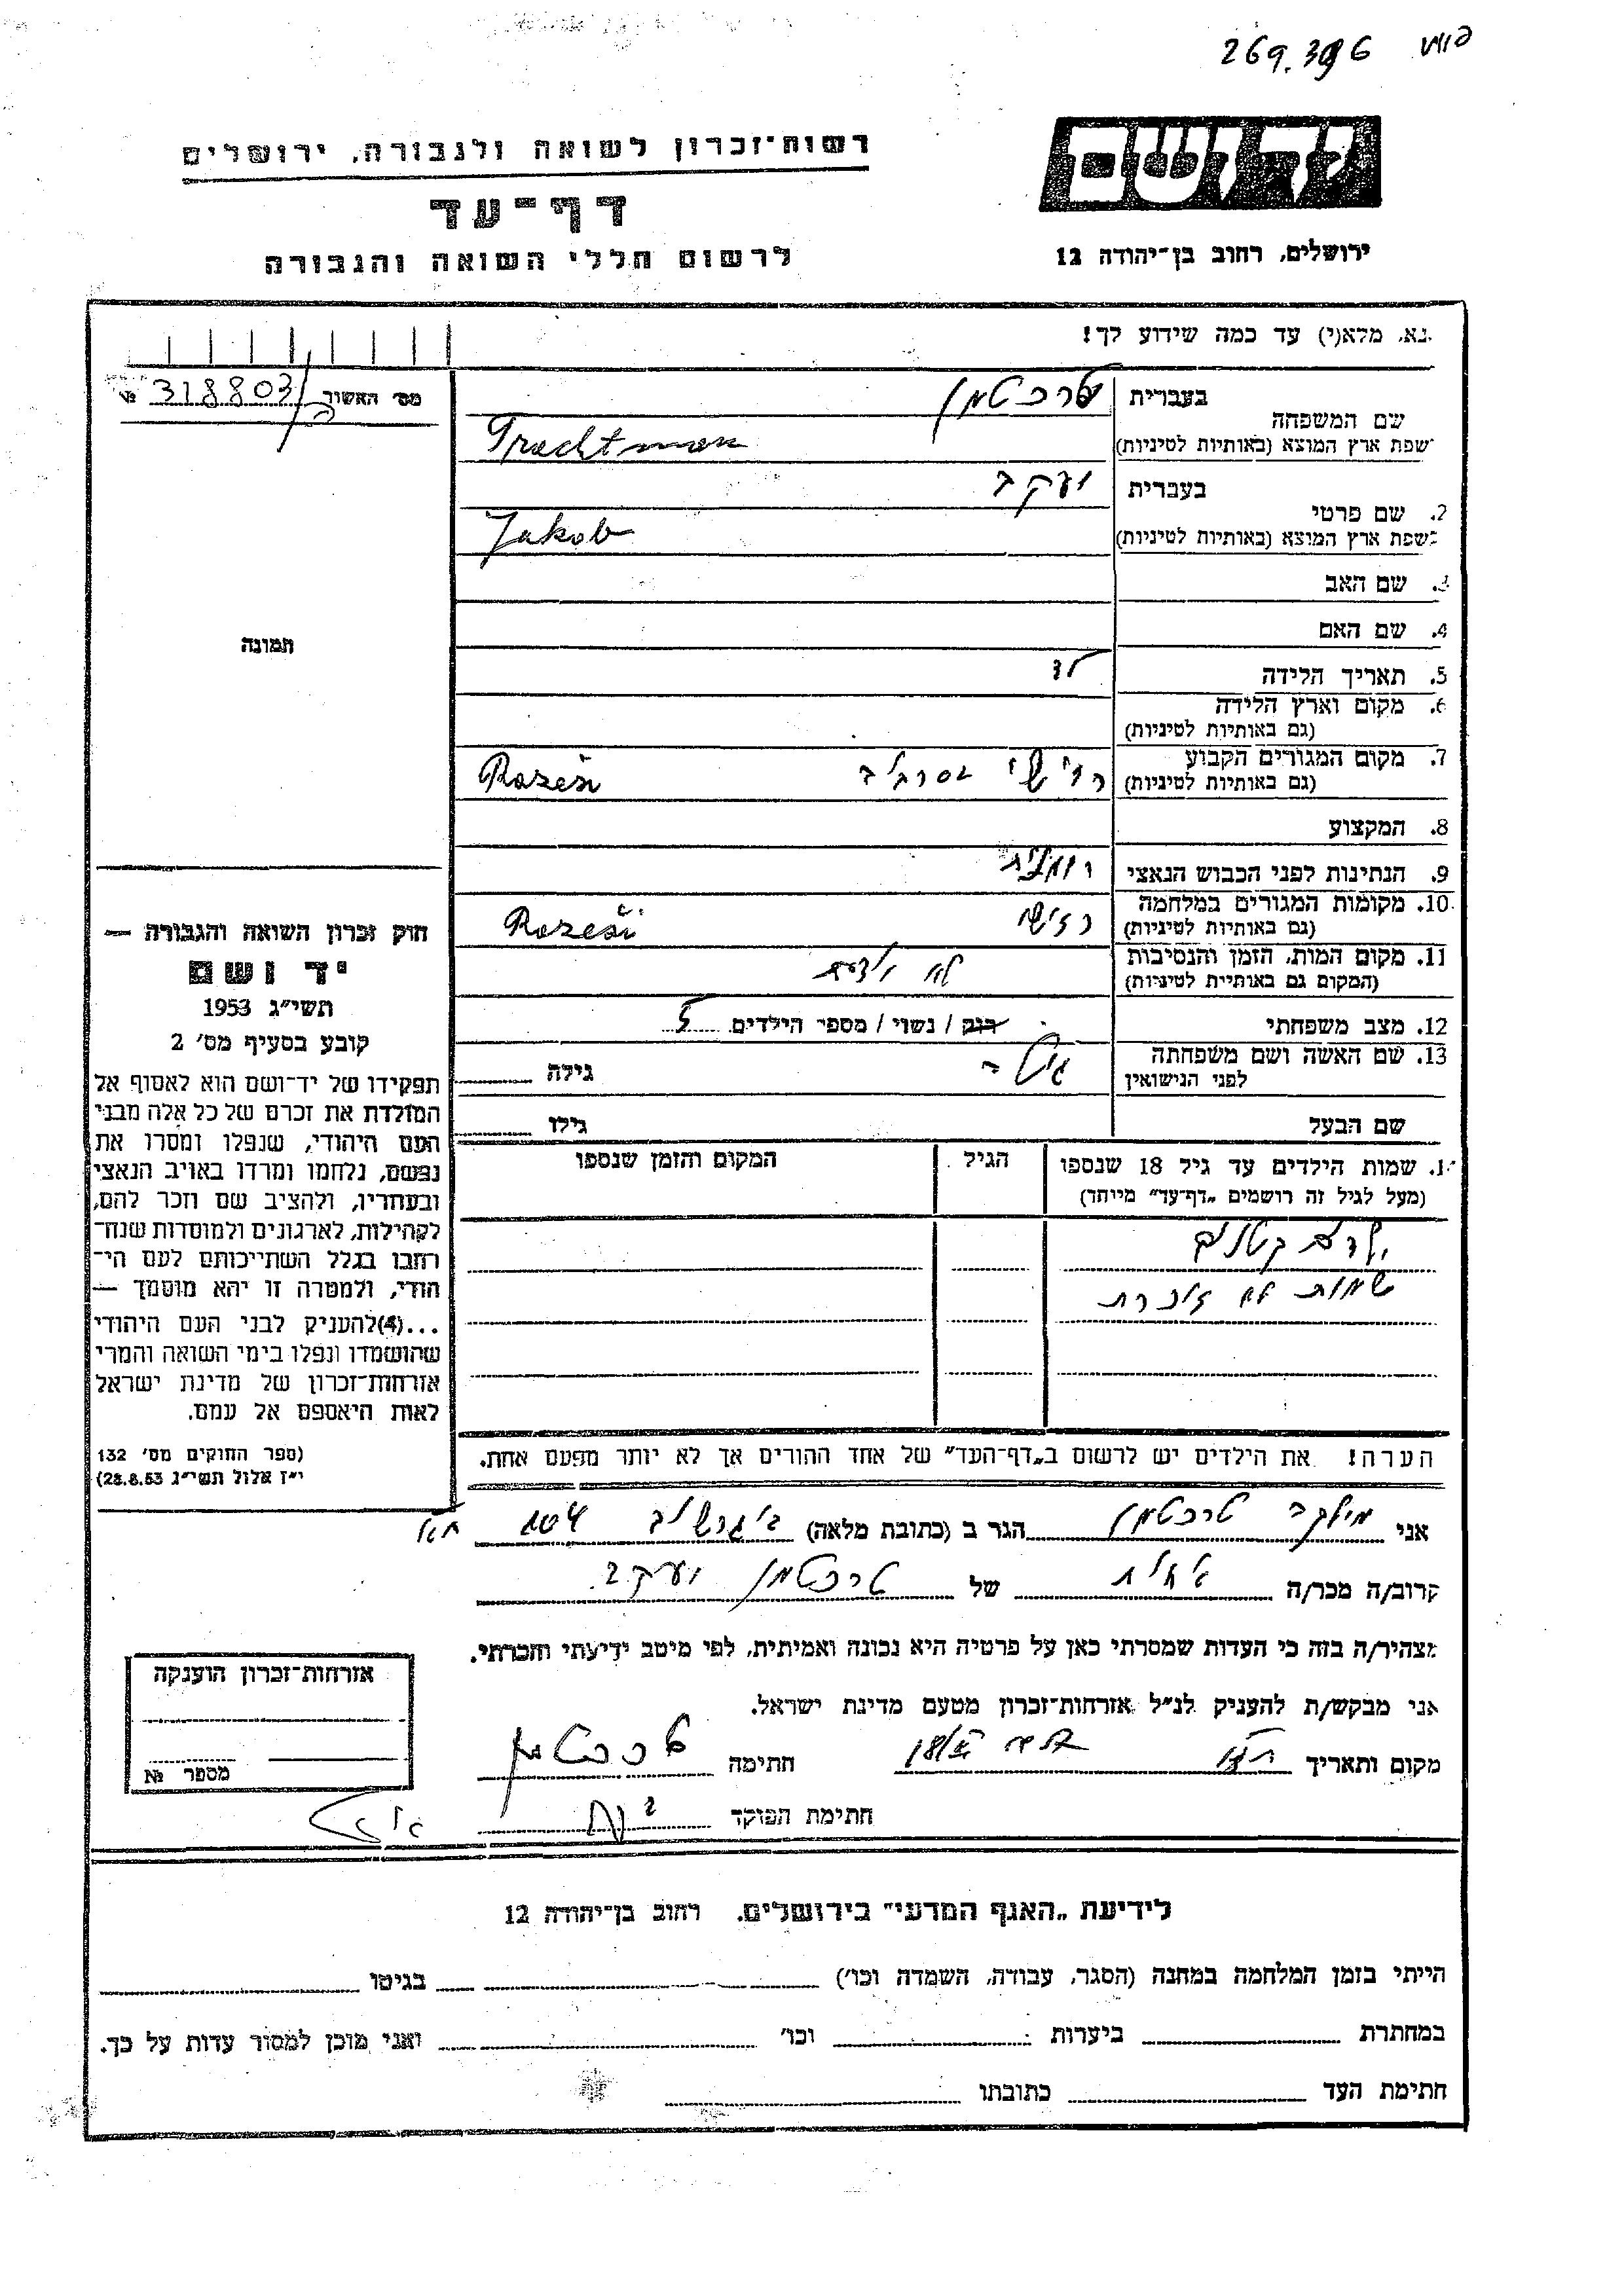 269.396
יד ושם
רשות־זכרון לשואה ולגבורה, ירושלים
דף־עד
לרשום חללי השואה והגבורה
ירושלים, רחוב בן־יהודה 12
נא, מלא(י) עד כמה שידוע לך!
מס׳ האשור 318803 №
בעברית טרכטמן
שם המשפחה
בשפת ארץ המוצא (באותיות לטיניות) Trachtman
בעברית יעקב
2. שם פרטי
בשפת ארץ המוצא (באותיות לטיניות) Jakob
3. שם האב
4. שם האם
5. תאריך הלידה
6. מקום וארץ הלידה
(גם באותיות לטיניות)
7. מקום המגורים הקבוע
(גם באותיות לטיניות) Rozeši
8. המקצוע
9. הנתינות לפני הכבוש הנאצי רומנית
10. מקומות המגורים במלחמה
(גם באותיות לטיניות) רזישי Rozeši
11. מקום המות, הזמן והנסיבות
(המקום גם באותיית לטיניות) לא ידוע
12. מצב משפחתי רוק / נשוי / מספר הילדים 5
13. שם האשה ושם משפחתה
לפני הנישואין גילה
שם הבעל גילו
תמונה
חוק זכרון השואה והגבורה —
יד ושם
תשי״ג 1953
קובע בסעיף מס׳ 2
תפקידו של יד־ושם הוא לאסוף אל
המולדת את זכרם של כל אלה מבני
העם היהודי, שנפלו ומסרו את
נפשם, נלחמו ומרדו באויב הנאצי
ובעוזריו, ולהציב שם וזכר להם,
לקהילות, לארגונים ולמוסדות שנח־
רחבו בגלל השתייכותם לעם הי־
הודי, ולמטרה זו יהא מוסמך —
...(4)להעניק לבני העם היהודי
שהושמדו ונפלו בימי השואה והמרי
אזרחות־זכרון של מדינת ישראל
לאות היאספם אל עמם.
(ספר החוקים מס׳ 132
י״ז אלול תשי״ג 28.8.53)
שמות הילדים עד גיל 18 שנספו הגיל המקום והזמן שנספו
(מעל לגיל זה רושמים „דף־עד” מיוחד)
ילדים קטנים
שמות לא זוכרת
הערה! את הילדים יש לרשום ב„דף־העד” של אחד ההורים אך לא יותר מפעם אחת.
אני טרכטמן הגר ב (כתובת מלאה)
קרוב/ה מכר/ה של טרכטמן יעקב
מצהיר/ה בזה כי העדות שמסרתי כאן על פרטיה היא נכונה ואמיתית, לפי מיטב ידיעתי והכרתי.
אני מבקש/ת להעניק לנ״ל אזרחות־זכרון מטעם מדינת ישראל.
מקום ותאריך חתימה טרכטמן
חתימת הפוקד
אזרחות־זכרון הוענקה
מספר №
לידיעת „האגף המדעי” בירושלים, רחוב בן־יהודה 12
הייתי בזמן המלחמה במחנה (הסגר, עבודה, השמדה וכו׳) בגיטו
במחתרת ביערות וכו׳ ואני מוכן למסור עדות על כך.
חתימת העד כתובתו